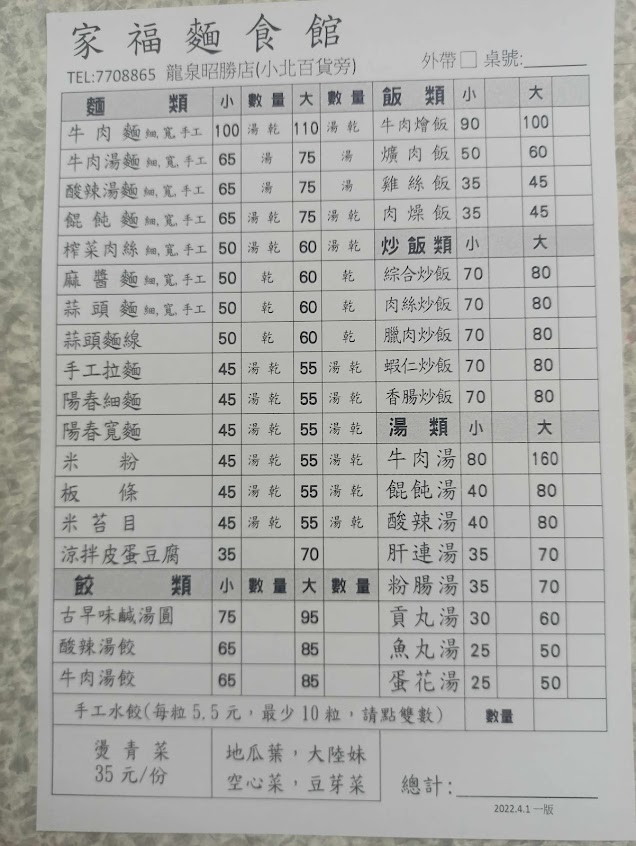 家福麵食館
TEL:7708865 龍泉昭勝店(小北百貨旁) 外帶□ 桌號:______
麵類 小 數量 大 數量 飯類 小 大
牛肉麵 細,寬,手工 100 湯 乾 110 湯 乾 牛肉燴飯 90 100
牛肉湯麵 細,寬,手工 65 湯 75 湯 爌肉飯 50 60
酸辣湯麵 細,寬,手工 65 湯 75 湯 雞絲飯 35 45
餛飩麵 細,寬,手工 65 湯 乾 75 湯 乾 肉燥飯 35 45
榨菜肉絲 細,寬,手工 50 湯 乾 60 湯 乾 炒飯類 小 大
麻醬麵 細,寬,手工 50 乾 60 乾 綜合炒飯 70 80
蒜頭麵 細,寬,手工 50 乾 60 乾 肉絲炒飯 70 80
蒜頭麵線 50 乾 60 乾 臘肉炒飯 70 80
手工拉麵 45 湯 乾 55 湯 乾 蝦仁炒飯 70 80
陽春細麵 45 湯 乾 55 湯 乾 香腸炒飯 70 80
陽春寬麵 45 湯 乾 55 湯 乾 湯類 小 大
米粉 45 湯 乾 55 湯 乾 牛肉湯 80 160
板條 45 湯 乾 55 湯 乾 餛飩湯 40 80
米苔目 45 湯 乾 55 湯 乾 酸辣湯 40 80
涼拌皮蛋豆腐 35 70 肝連湯 35 70
餃類 小 數量 大 數量 粉腸湯 35 70
古早味鹹湯圓 75 95 貢丸湯 30 60
酸辣湯餃 65 85 魚丸湯 25 50
牛肉湯餃 65 85 蛋花湯 25 50
手工水餃(每粒5.5元,最少10粒,請點雙數) 數量
燙青菜 地瓜葉,大陸妹
35元/份 空心菜,豆芽菜 總計:______
2022.4.1一版